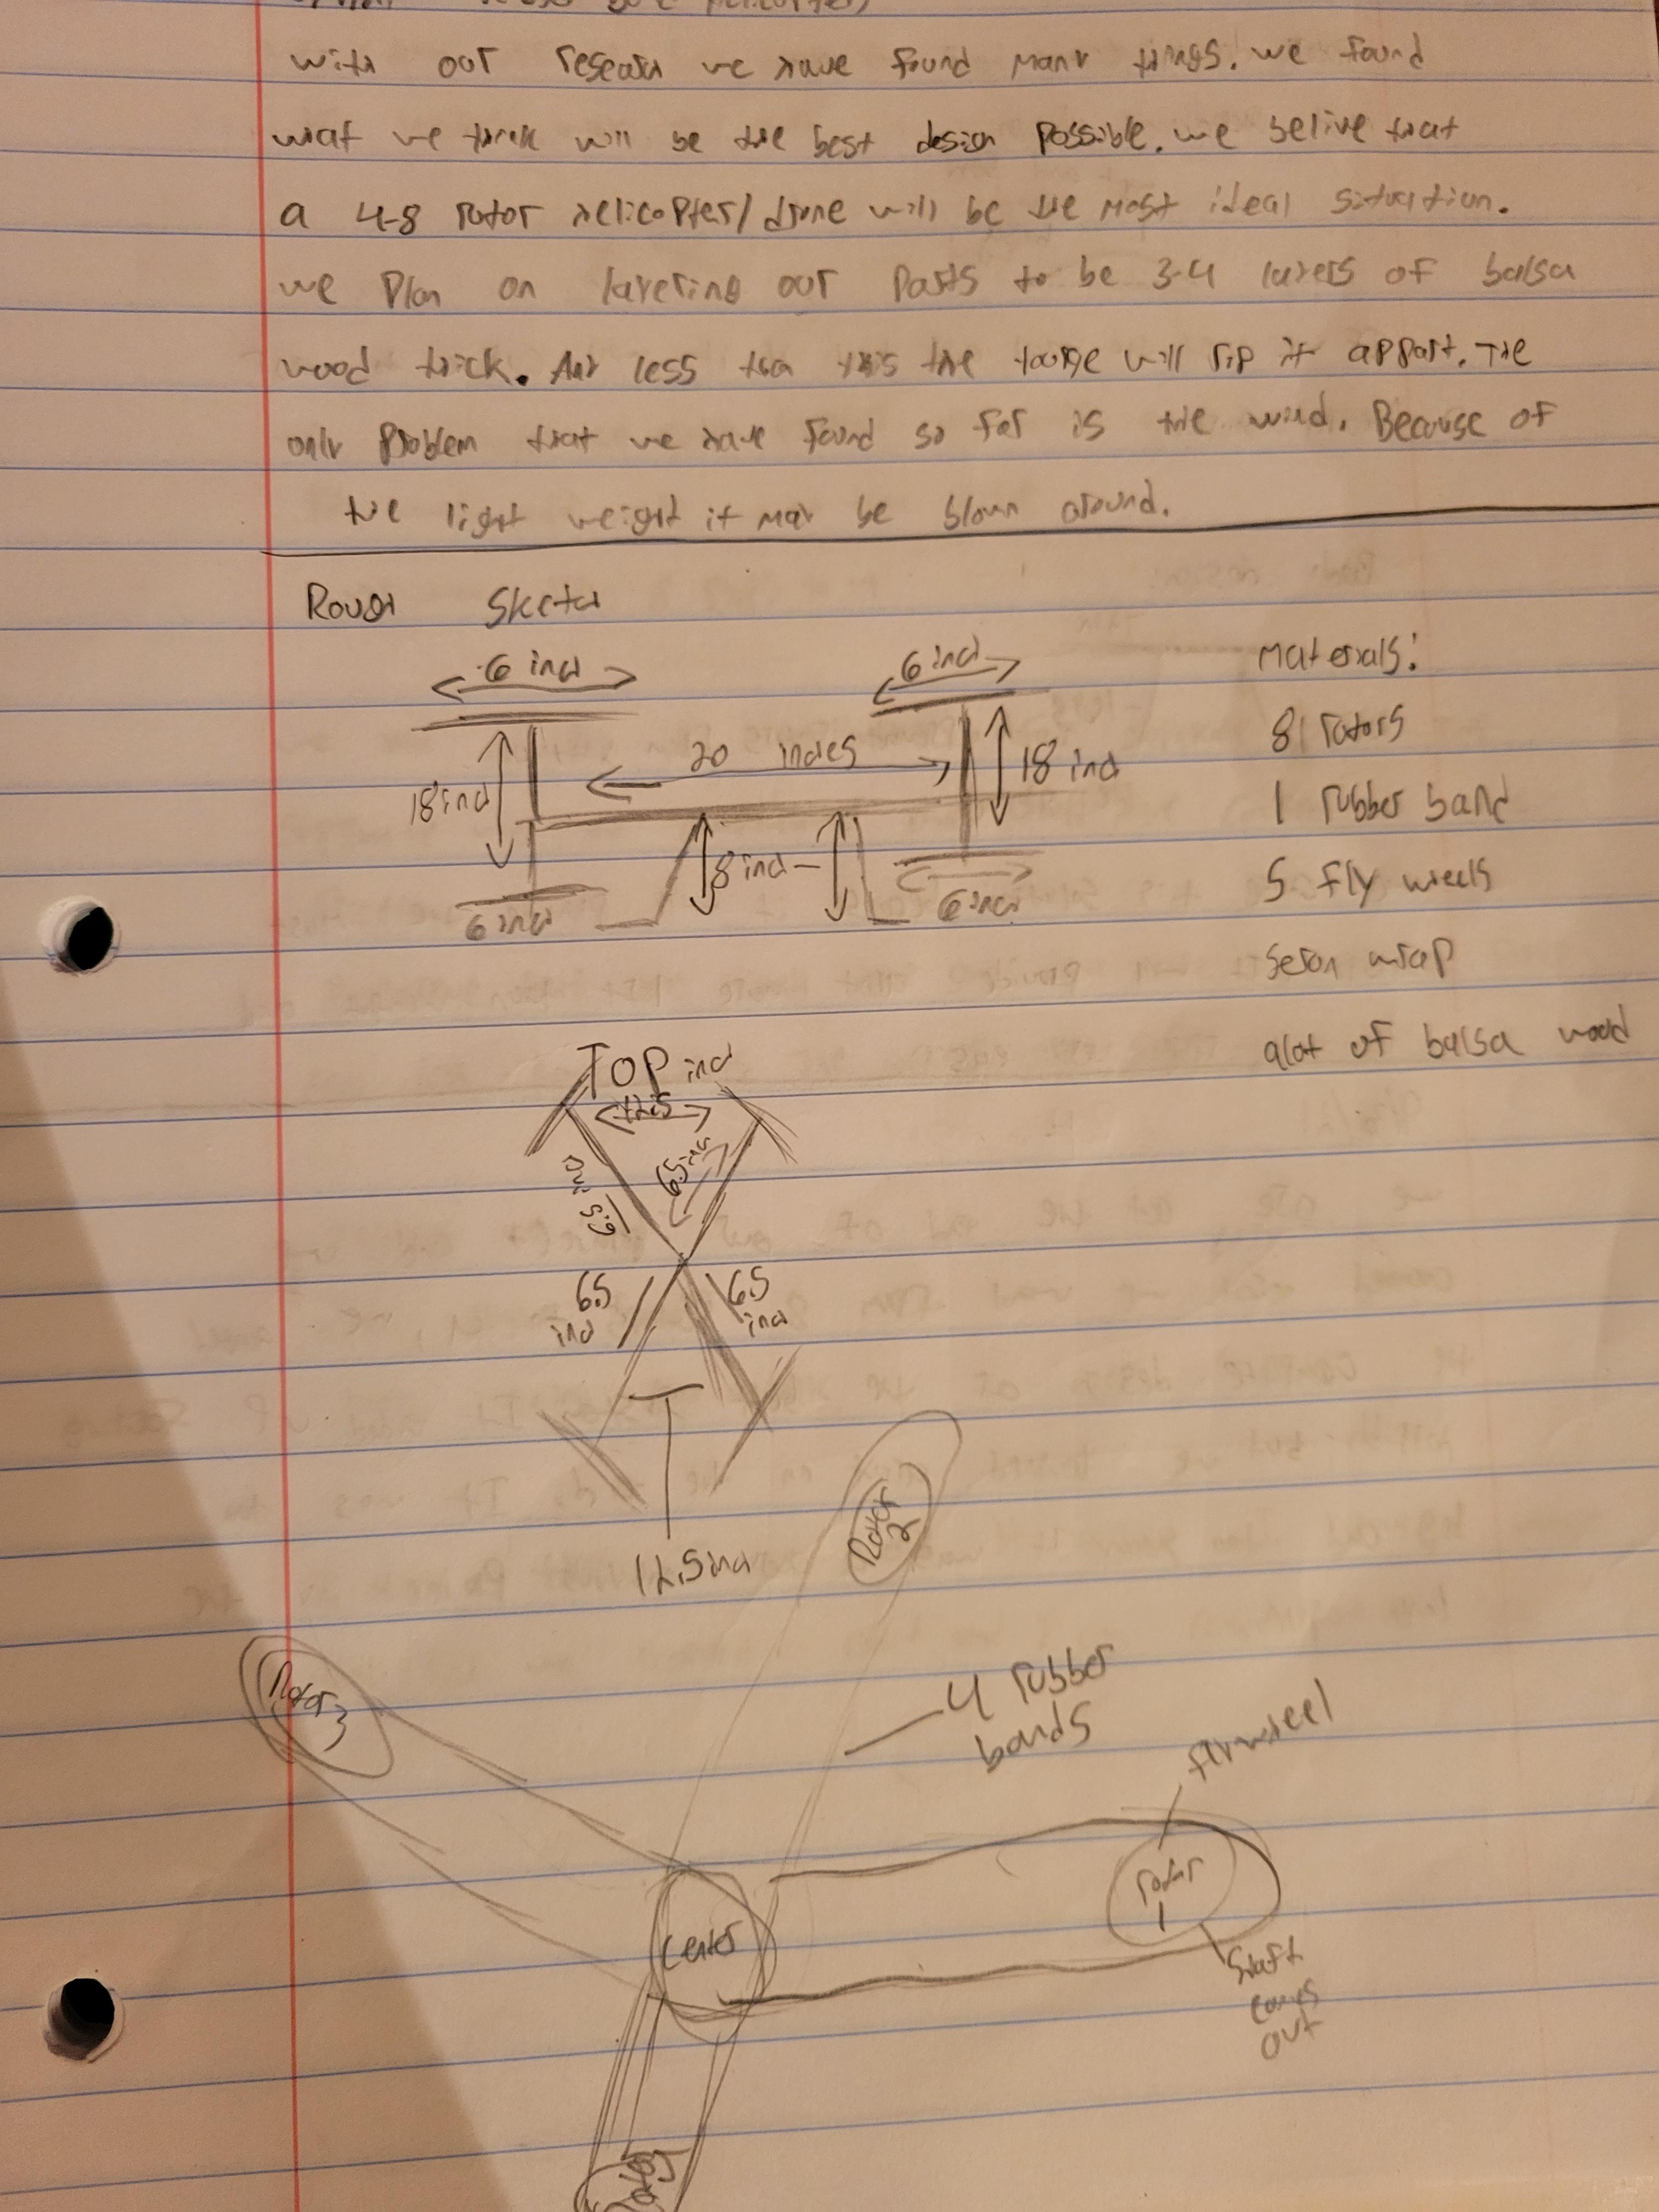 with our research we have found many things. we found
what we think will be the best design possible. we belive that
a 4-8 rotor helicopter/drone will be the most ideal situation.
we plan on layering our parts to be 3-4 layers of balsa
wood thick. Any less than this the tourqe will rip it appart. The
only problem that we have found so far is the wind. Because of
the light weight it may be blown around.
Rough Sketch
6 inch
6 inch
Materials:
8 rotors
20 inches
18 inch
18 inch
1 rubber band
8 inch
5 fly wheels
6 inch
6 inch
seran wrap
alot of balsa wood
TOP
inch
12.5
6.5 inch
6.5 inch
6.5
inch
6.5
inch
12.5 inch
Rotor
2
Rotor
3
4 rubber
bands
flywheel
rotor
1
Center
shaft
comes
out